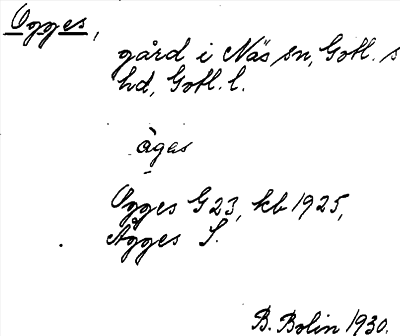 Ogges,
gård i Näs sn, Gotl. s
hd, Gotl. l.
åges
Ogges G23, kb 1925,
Ågges S.
B. Bolin 1930.